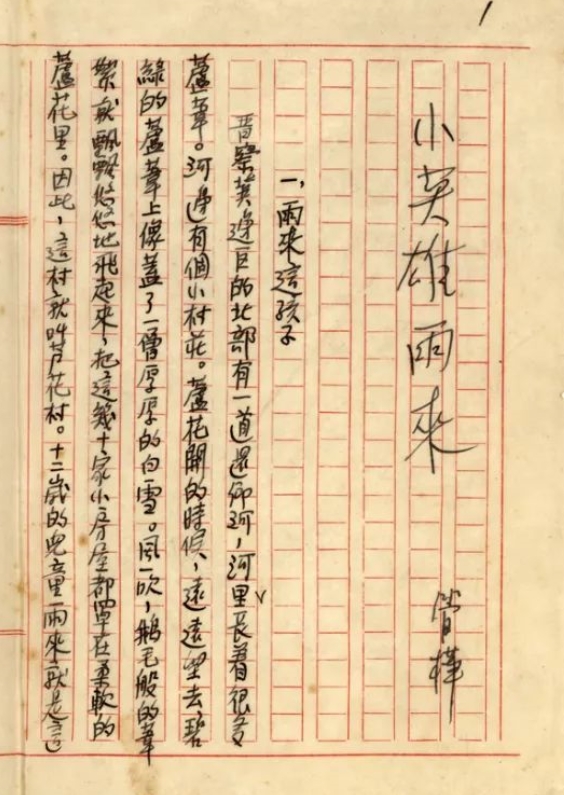 1
小英雄雨來
管樺
一，雨來這孩子
晋察冀邊區的北部有一道還鄉河，河里長着很多
蘆葦。河邊有個小村莊。蘆花開的時候，遠遠望去，碧
綠的蘆葦上像蓋了一層厚厚的白雪。風一吹，鵝毛般的葦
絮就飄飄悠悠地飛起來，把這幾十家小房屋都罩在柔軟的
蘆花里。因此，這村就叫芦花村。十二歲的兒童雨來就是這